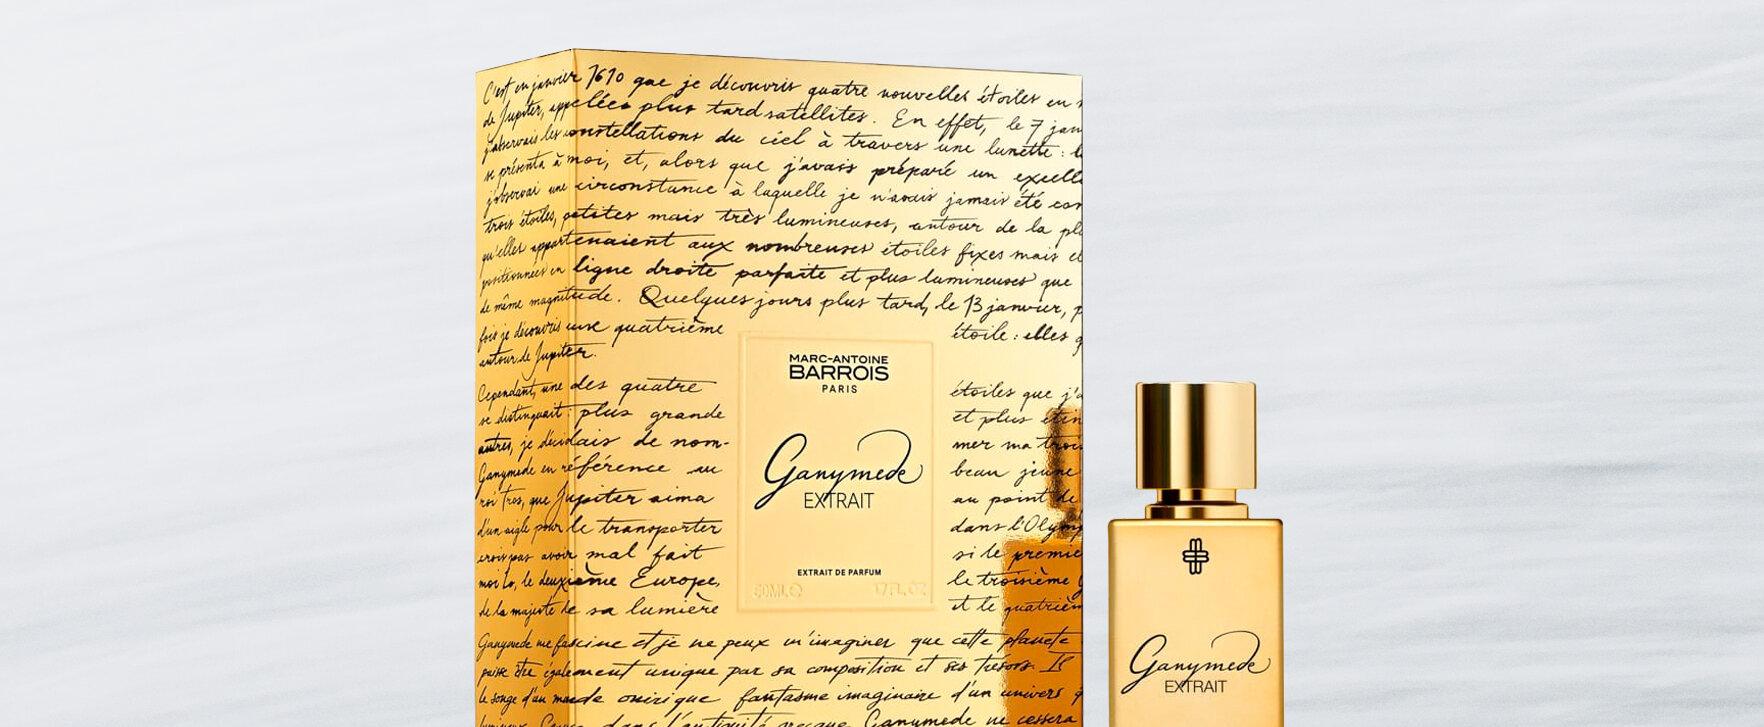 C'est en janvier 1610 que je découvris quatre nouvelles étoiles en
de Jupiter, appelées plus tard satellites. En effet, le 7 jan
j'observais les constellations du ciel à travers une lunette :
se présenta à moi, et, alors que j'avais préparé un excell
j'observai une circonstance à laquelle je n'avais jamais été
trois étoiles, petites mais très lumineuses, autour de la
qu'elles appartenaient aux nombreuses étoiles fixes mais
positionnées en ligne droite parfaite et plus lumineuses que
de même magnitude. Quelques jours plus tard, le 13 janvier,
fois je découvris une quatrième étoile : elles
autour de Jupiter.
MARC-ANTOINE
BARROIS
PARIS
Cependant, une des quatre étoiles que j'
se distinguait : plus grande et plus
autres, je décidais de nom- mer ma
Ganymede en référence au beau jeune
roi Tros, que Jupiter aima au point de
d'un aigle pour le transporter dans l'Olym
crois pas avoir mal fait si le premie
moi Io, le deuxième Europe, le troisième
de la majesté de sa lumière et le quatrièm
Ganymede
EXTRAIT
EXTRAIT DE PARFUM
50ML 1.7 FL.OZ
Ganymede me fascine et je ne peux m'imaginer que cette planète
puisse être également unique par sa composition et ses trésors. Il
le songe d'un monde onirique fantasme imaginaire d'un univers
dans l'antiquité Ganymede ne cessera
Ganymede
EXTRAIT